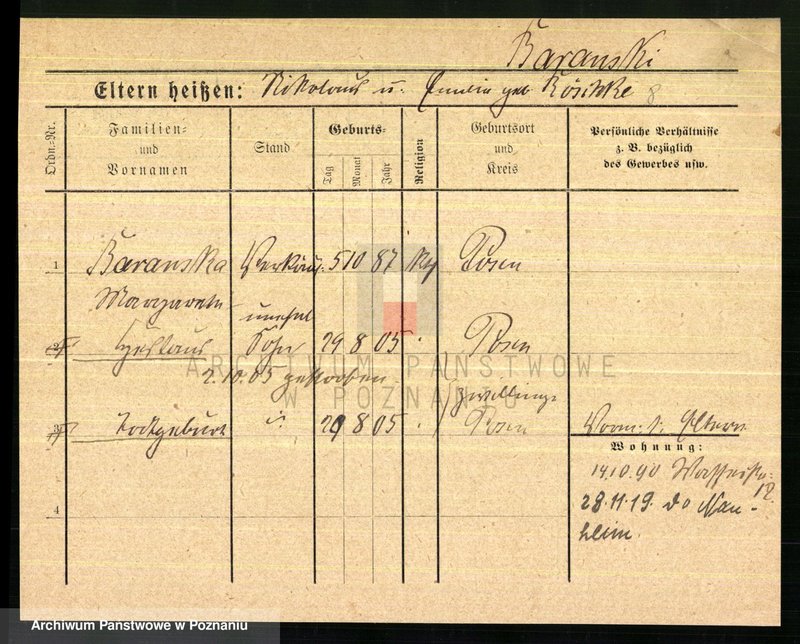 Baranski
Eltern heißen: Nikolaus u. Emilie geb Röschke 8
Ordn.-Nr.
Familien- und Vornamen
Stand
Geburts-
Tag
Monat
Jahr
Religion
Geburtsort und Kreis
Persönliche Verhältnisse z. B. bezüglich des Gewerbes usw.
1 Baranska Verkäuf. 5 10 87 Posen
Margareth
unehel
2 Sohn 29 8 05 Posen
2.10.05 gestorben
Zwillinge
3 Todtgeburt 29 8 05 Posen
Vorm. s. Eltern
Wohnung:
14.10.90 12
28.11.19. do Mannheim.
4
ARCHIWUM PAŃSTWOWE
W POZNANIU
Archiwum Państwowe w Poznaniu